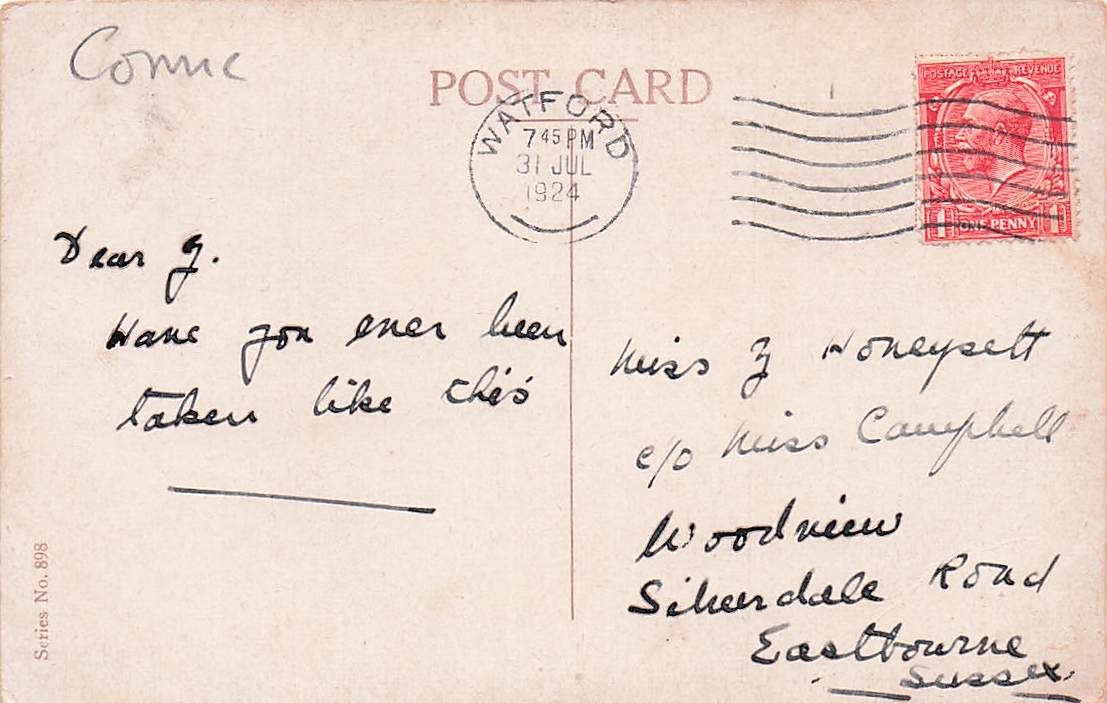 Connie
POST CARD
WATFORD
7 45 PM
31 JUL
1924
POSTAGE REVENUE
1D ONE PENNY 1D
Dear Y.
Have you ever been
taken like this
Miss Y Honeysett
c/o Miss Campbell
Woodview
Silverdale Road
Eastbourne
Sussex.
Series No. 898